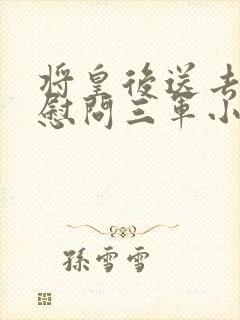 将皇後送去
慰問三軍小
孫雪雪